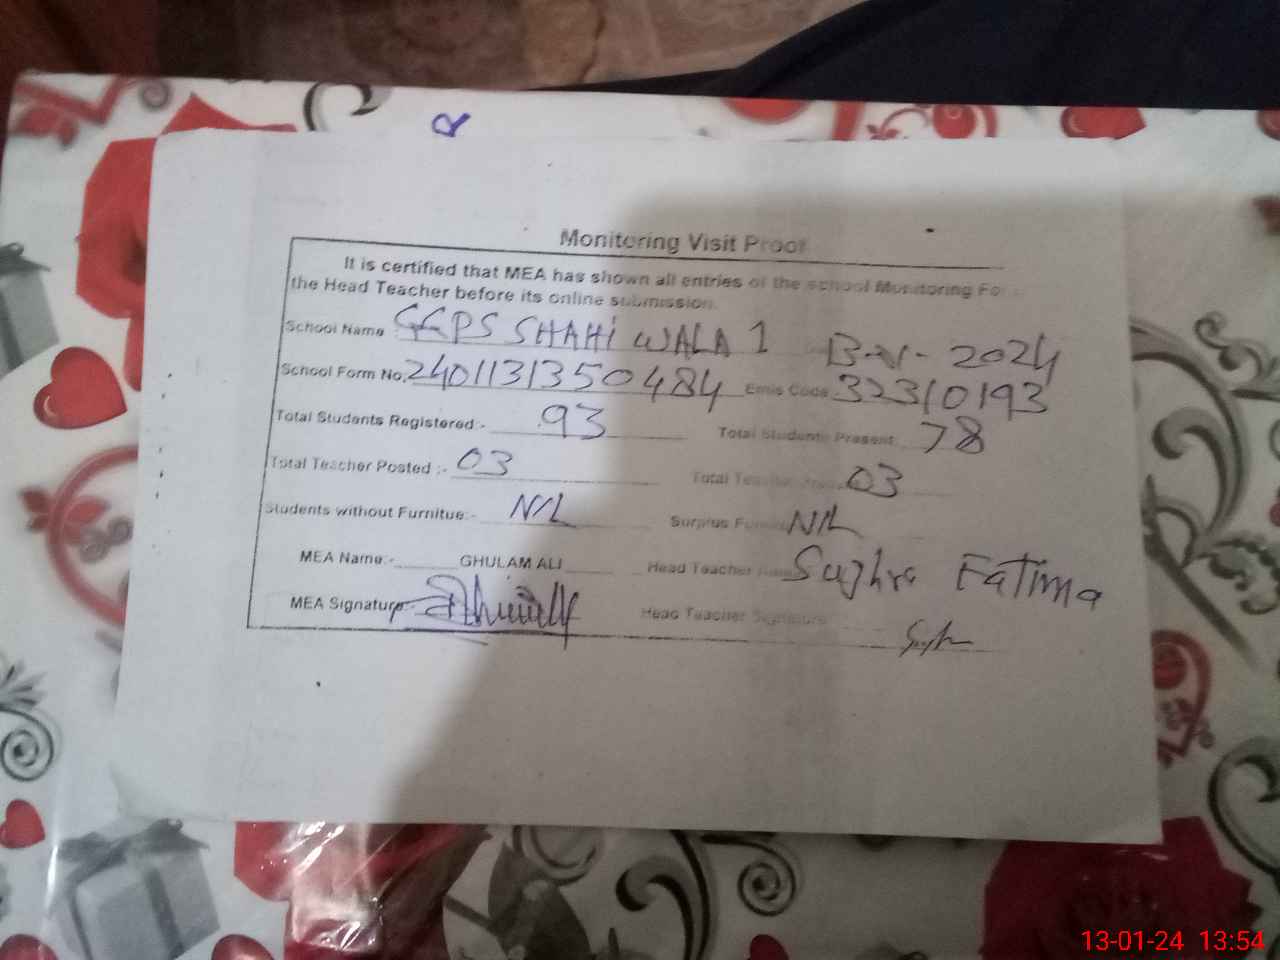 Monitoring Visit Proof
It is certified that MEA has shown all entries of the school Monitoring Form
the Head Teacher before its online submission.
School Name : GGPS SHAHI WALA 1 2024
School Form No. 2401131350484 Emis Code 32310193
Total Students Registered:- 93 Total Students Present 78
Total Teacher Posted :- 03 Total 03
Students without Furnitue:- NIL Surplus NIL
MEA Name:- GHULAM ALI Head Teacher Name Sughra Fatima
MEA Signature:- Head Teacher Signature
13-01-24 13:54